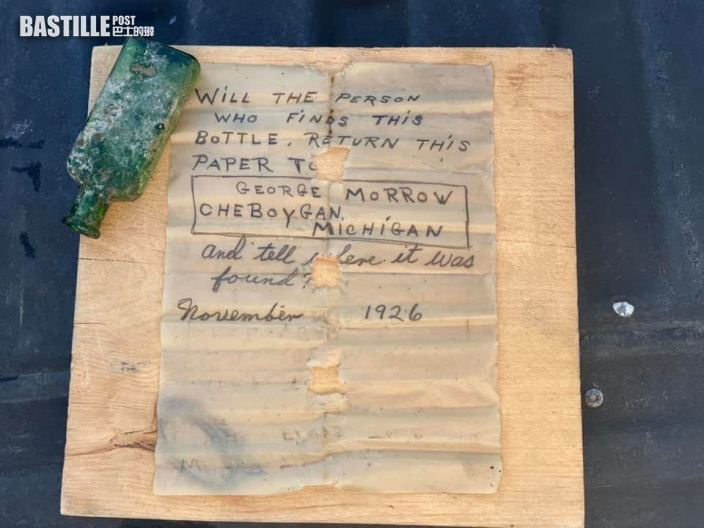 BASTILLE POST
巴士的報
WILL THE PERSON
WHO FINDS THIS
BOTTLE, RETURN THIS
PAPER TO
GEORGE MORROW
CHEBOYGAN,
MICHIGAN
and tell where it was
found?
November 1926